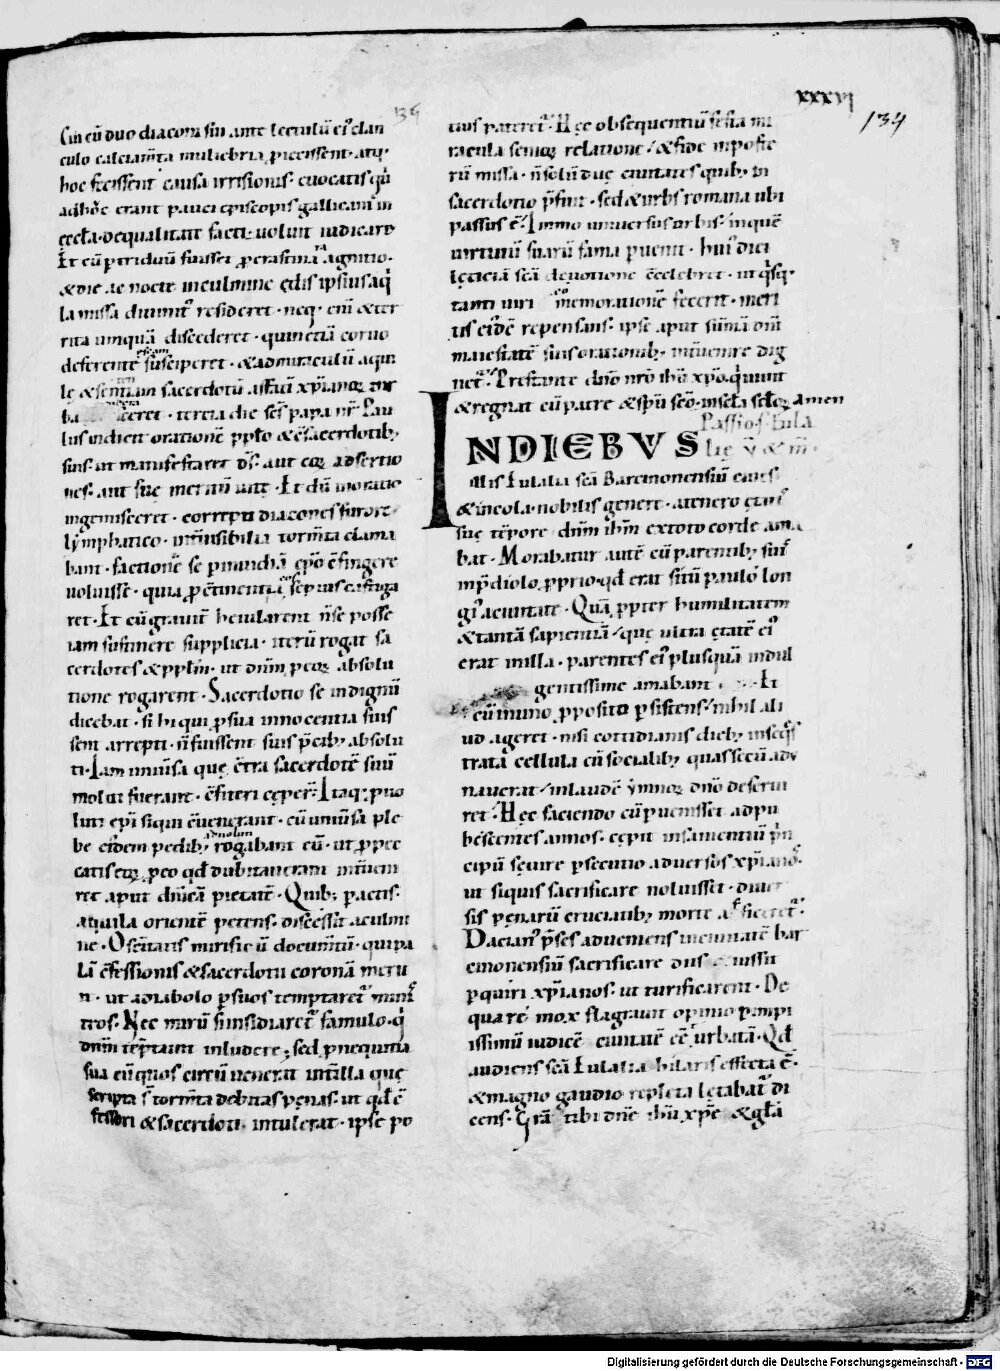 xxxvi
134
culo calciam̄ta muliebria p̄iecissent · atq;
hoc fecissent causa irrisionis · euocatis
erant pauci episcopis gallicani in
eccl̄a · de qualitate facti uoluit iudicare
Et cū ptriduū fuisset
& die ac nocte in culmine ędis ipsius aq̇
la missa diuinit᷒ resideret · neq; eni &ter
rita umquā discederet · quin etiā coruo
deferentē susciperet · & ad miraculū aqui
sacerdotū
ceret · tercia die sc̄s papa nr̄ Pau
lus indicit orationē pp̄lo & c̄sacerdotib;
suis · ut manifestaret d̄s · aut eoꝝ adsertio
nes · aut suę meritū uitę · Et dū in oratio
ingemisceret · correpti diacones furore
lymphatico · inuisibilia torm̄ta clama
bant · factionē se p inuidiā ep̄o c̄fingere
uoluisse · quia
ret · Et cū grauit᷒ heiularent n̄ se posse
iam sustinere supplicia · iterū rogat sa
cerdotes & pp̄lm̄ · ut dn̄m p eoꝝ absolu
tione rogarent · Sacerdotio se indignū
dicebat · si hi qui p sua innocentia suis
sent arrepti · n̄ fuissent suis p̄cib; absolu
ti · Iam uniūsa quę c̄tra sacerdotē suū
moliti fuerant · c̄fiteri cęper᷒ · Itaq; puo
luti ep̄i siqui c̄uenerant · cū uniūsa ple
be eidem pedib; aduoluti rogabant eū · ut p pec
catis eoꝝ · p eo qd̄ dubitauerant interueni
ret aput dn̄icā pietatē · Quib; pactis ·
aquila orientē petens · discessit a culmi
ne · O sc̄itatis mirificū documtū · qui pa
lā c̄fessionis & sacerdotii coronā meru
it · ut a diabolo p suos temptaret᷒ minis
tros · Nec mirū si insidiaret᷒ famulo · q̇
dn̄m tēptauit inludere; sed p nequitia
sua cū quos circūuenerat in illa quę
scripta s̄ torm̄ta debitas pęnas · ut qd̄ c̄
fessori & sacerdoti intulerat · ipse po
tius pateret᷒ · Hęc obsequentiū festa mi
racula semoꝝ relatione / & fide in poste
rū missa · n̄ solū duę ciuitates quib; in
sacerdotio p̄fuit · sed & urbs romana ubi
passus ē · Immo uniuersus orbis · in quē
uirtutū suarū fama puenit · hui᷒ diei
lęticiā sc̄ā deuotione c̄celebret · ut q̇sq·
tanti uiri cōmemorationē fecerit · meri
tis ei᷒dē repensans · ipse aput sūmā dīni
maiestatē suis orationib; inuenire dig
net᷒ · Prestante dn̄o nr̄o ih̄u xp̄o · qui uiuit
& regnat cū patre & sp̄u sc̄o · in sc̄la sc̄loꝝ amen
Passio · s · Eula
lię v̄ & m̄ ·
IN DIEBVS
illis Eulalia sc̄ā Barcinonensiū ciuis
& incola · nobilis genere · a tenero ętatis
suę tēpore dn̄m ih̄m ex toto corde ama
bat · Morabatur autē cū parentib; suis
in p̄diolo p prio · qd̄ erat sitū paulo lon
gi᷒ a ciuitate · Quā p pter humilitatem
& tantā sapientiā / quę ultra ętatē ei᷒
erat in illa · parentes ei᷒ plus quā indul
gentissime amabant · Et
cū in uno p posito p sistens / nihil ali
ud ageret · nisi cottidianis dieb; in seq̄s
trata cellula cū socialib; quas secū adu
nauerat / in laudē ymnoꝝ dn̄o deserui
ret · Hęc faciendo cū puenisset ad pu
bescentes annos · cępit insanientiū p̄n
cipū sęuire psecutio aduersos xp̄ianos ·
ut siquis sacrificare noluisset · diuer
sis pęnarū cruciatib; morte afficeret᷒ ·
Dacian᷒ p̄ses adueniens in ciuitatē bar
cinonensiū sacrificare diis c̄ iussit
p quiri xp̄ianos · ut turificarent · De
qua re mox flagrauit opinio p impi
issimū iudicē ciuitatē eē turbatā · Qd̄
audiens sc̄ā Eulalia hilaris effecta ē ·
& magno gaudio repleta lętabat᷒ di
cens · Gr̄ā tibi dn̄e ih̄u xp̄e & gl̄ā
Digitalisierung gefördert durch die Deutsche Forschungsgemeinschaft - DFG